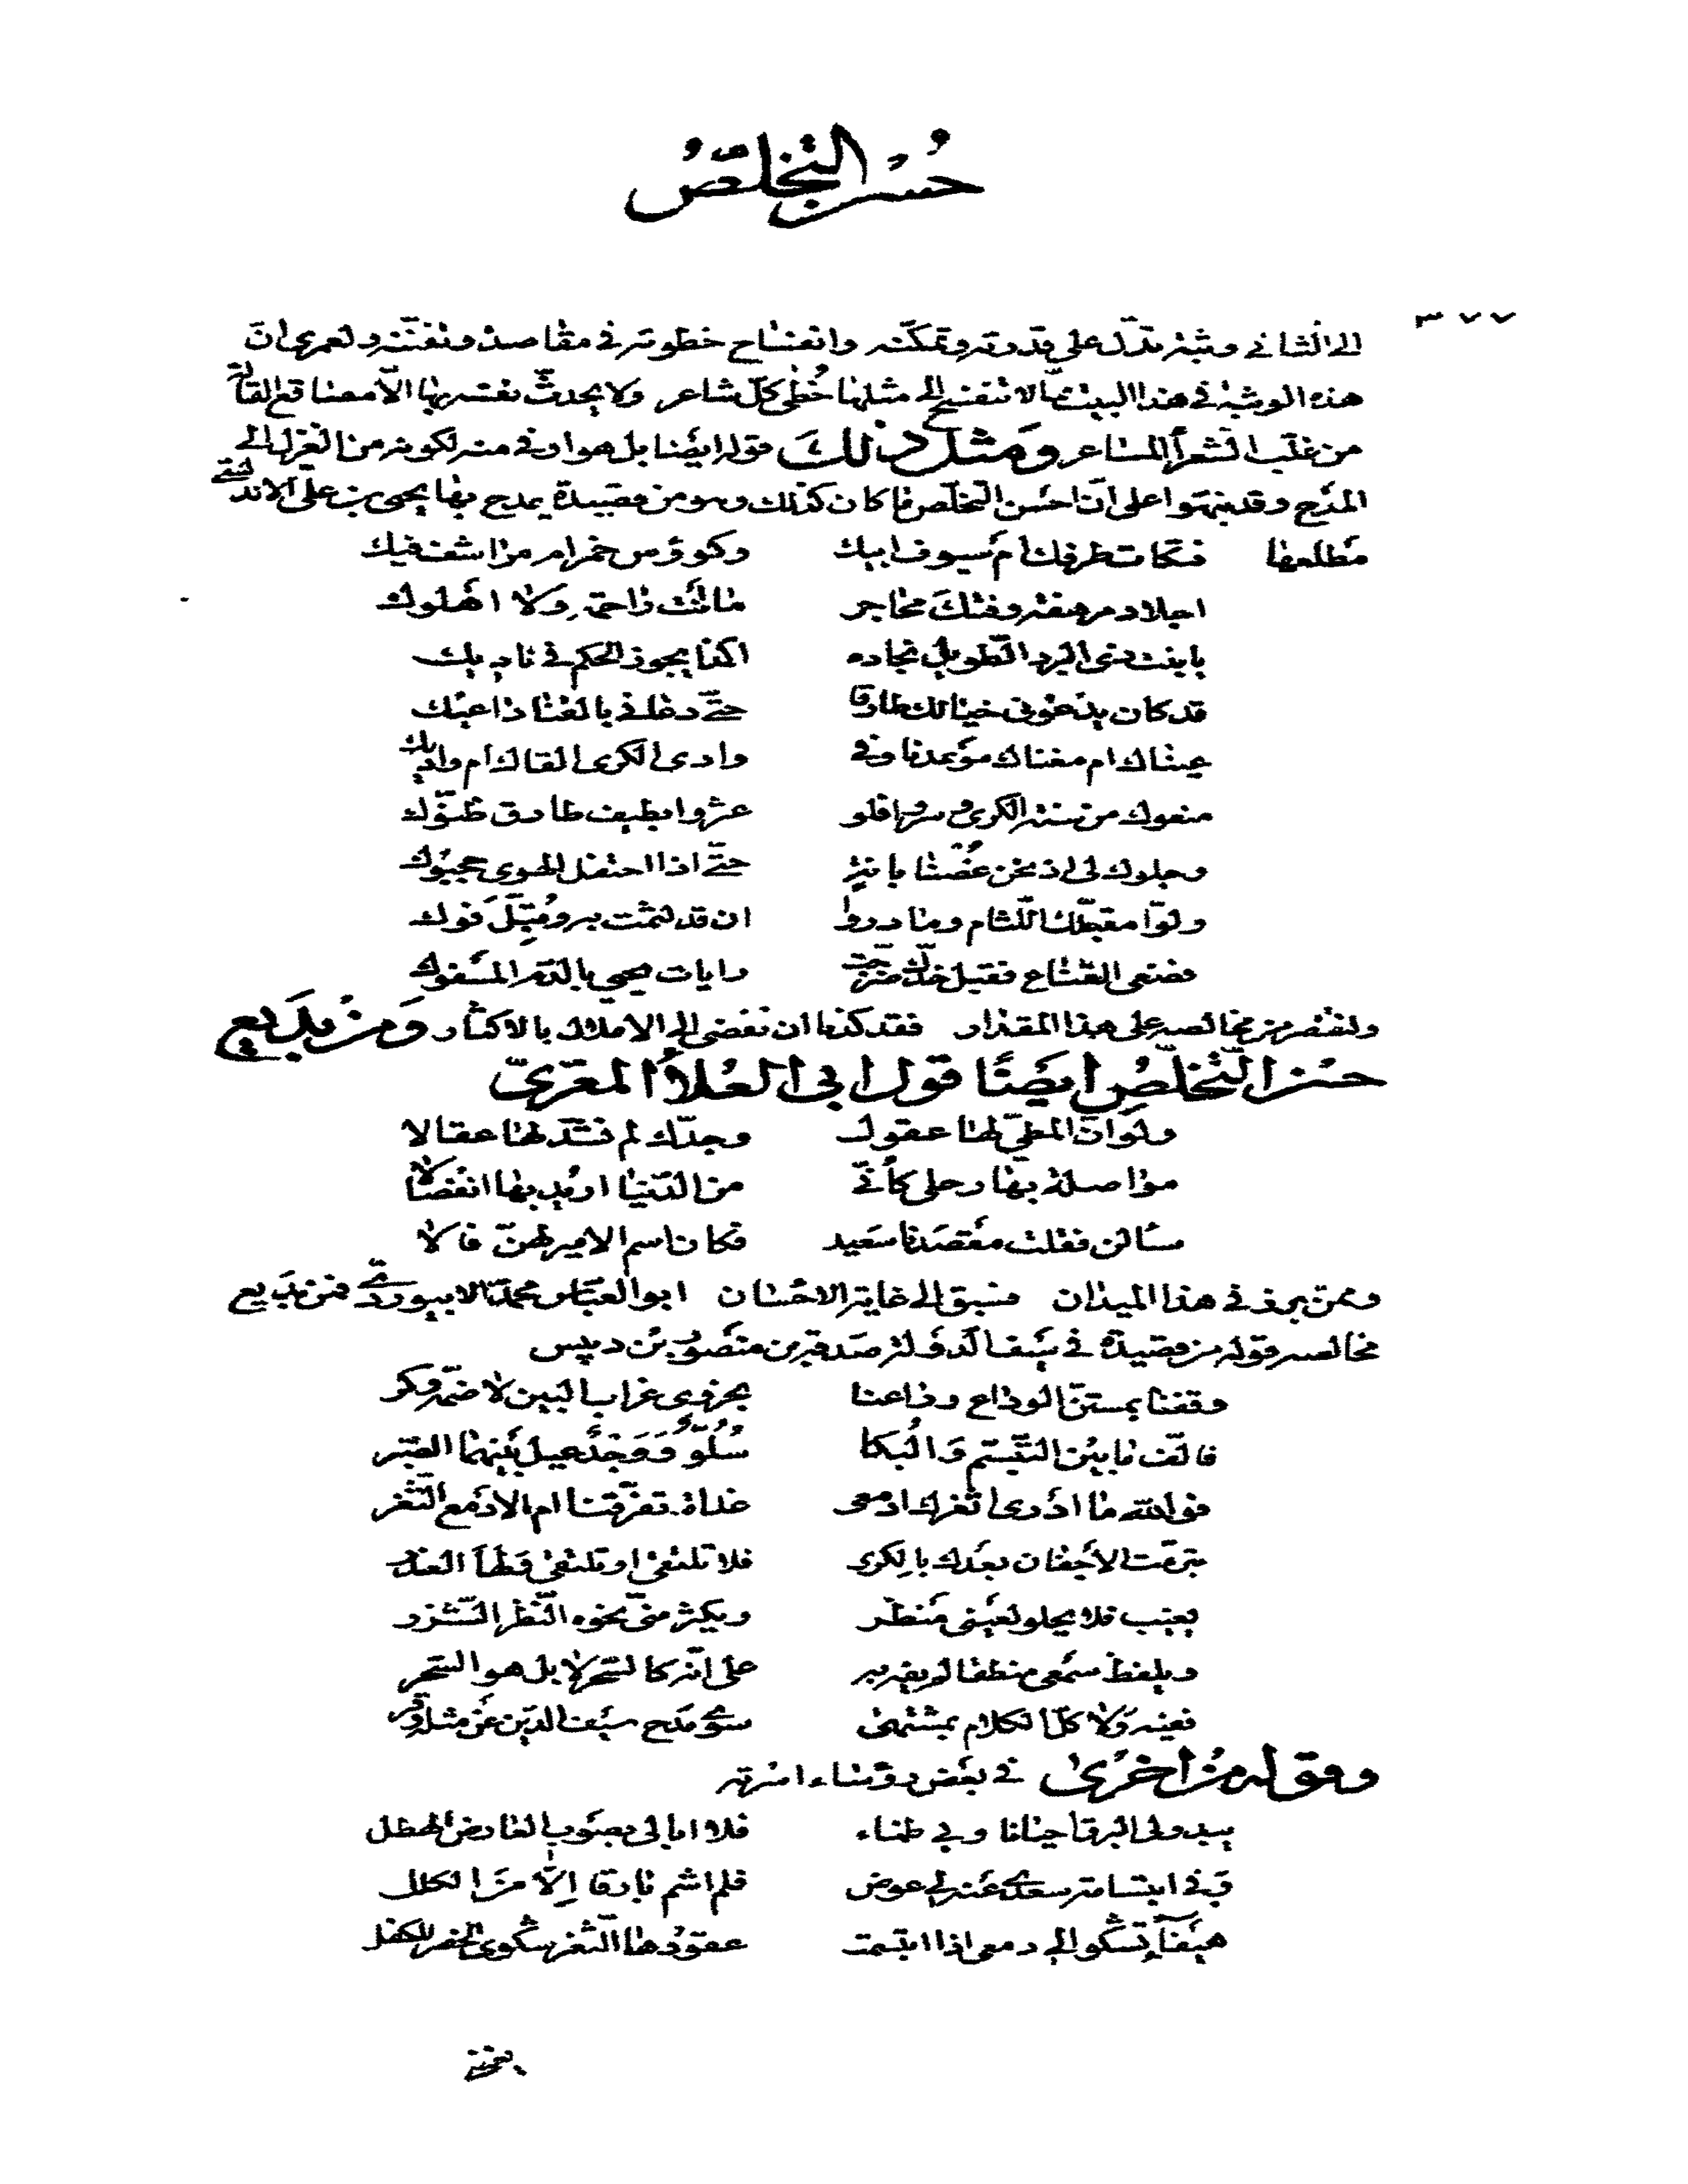 حُسْن التخلّصُ
٣٧٧
الى الثاني وثبة تدلّ على قدرته وتمكّنه وانفساح خطوته في مقاصده وتفنّنه ولعمري انّ
هذه الوثبة في هذا البيت ممّا لا تنفسح الى مثلها خُطى كلّ شاعر ولا يحدّث نفسه بها الاّ
من غلب الشعرآ المشاعر وَمثل ذلكَ قوله ايضًا بل هو اوفى منه لكونه من الغزل الى
المدح وقد نبّهوا على انّ احسن التخلّص ما كان كذلك وهو من قصيدة يمدح بها يحيى بن على الاندلسي
مَطلعها فتكات طرفك ام سيوف ابيك وكوؤس خمر ام مراشف فيك
اجلاد مرهفة وفتك محاجر ما انت راحمة وَلا اهلوك
يا بنت ذى البرد الطويل نجاده اكذا يجوز الحكم في ناديك
قد كان يدعوني خيالك طارقا حتّى دعاني بالقنا داعيك
عيناك ام مغناك موعدنا وفى وادى الكرى القاك ام واديك
منعوك من سنة الكرى وسروا فلو عثروا بطيف طارق ظنّوك
وجلوك لى اذ نحن غُصنا بانة حتّى اذا احتفل الهوى حجبوك
ولووا مقبّلك اللّثام وما دروا ان قد لثمت به وقُبّل فوك
فضعى القناع فقبل خدّك ضرّجت رايات يحيى بالدّم المسفوك
ولنقتصر من مخالصه على هذا المقدار فقد كدنا ان نفضى الى الاملال بالاكثار وَمنْ بَديع
حسْن التّخلّصُ ايضًا قول ابى العُلاَء المعَرّىّ
ولَو انّ المطىّ لها عقول وجدّك لم نشدّ لها عقالا
مواصلة بها رحلى كأنّى من الدّنيا اريد بها انفصالا
سألن فقلت مقصدنا سَعيد فكان اسم الامير لهنّ فالا
وممّن برز في هذا الميدان وسبق الى غاية الاحسان ابو العبّاس محمّد الابيوردى فمن بديع
مخالصه قوله من قصيدة في سيف الدّولة صدقة بن منصور بن دبيس
وقفنا بمستنّ الوداع وراعنا بحزوى غراب البين لا ضمّه وكر
فالّف ما بين التبسّم وَالبكا سُلُوّ وَوَجد عيل بينهما الصّبر
فو الله ما ادرى اثغرك ادمعى غداة تفرّقنا ام الادمع الثّغر
تبرّمت الاجفان بعدك بالكرى فلا تلتقى او تلتقى
يعيب فلا يحلو لعينى مَنظر ويكثر منّى نحوه النّظر الشّزر
ويلفظ سمعى منطقا لم يفه به على انّه كالسّحر لا بل هو السّحر
فعينه وَلا كلّ الكلام بمشتهى سوى مدح سيف الدّين عن مثله
وقوله منْ اخرى في بعض رؤساء اسرته
يبدو لى البرق احيانا وبى ظماء فلا ابالى بصَوب العارض الهطل
وفى ابتسامة سعدى عنه لى عوض فلم اشم بارقا اِلاّ من الكلل
هيفآء تشكو الى دمعى اذا ابتسمت عقود ها الثّغر شكوى الخصر للكفل